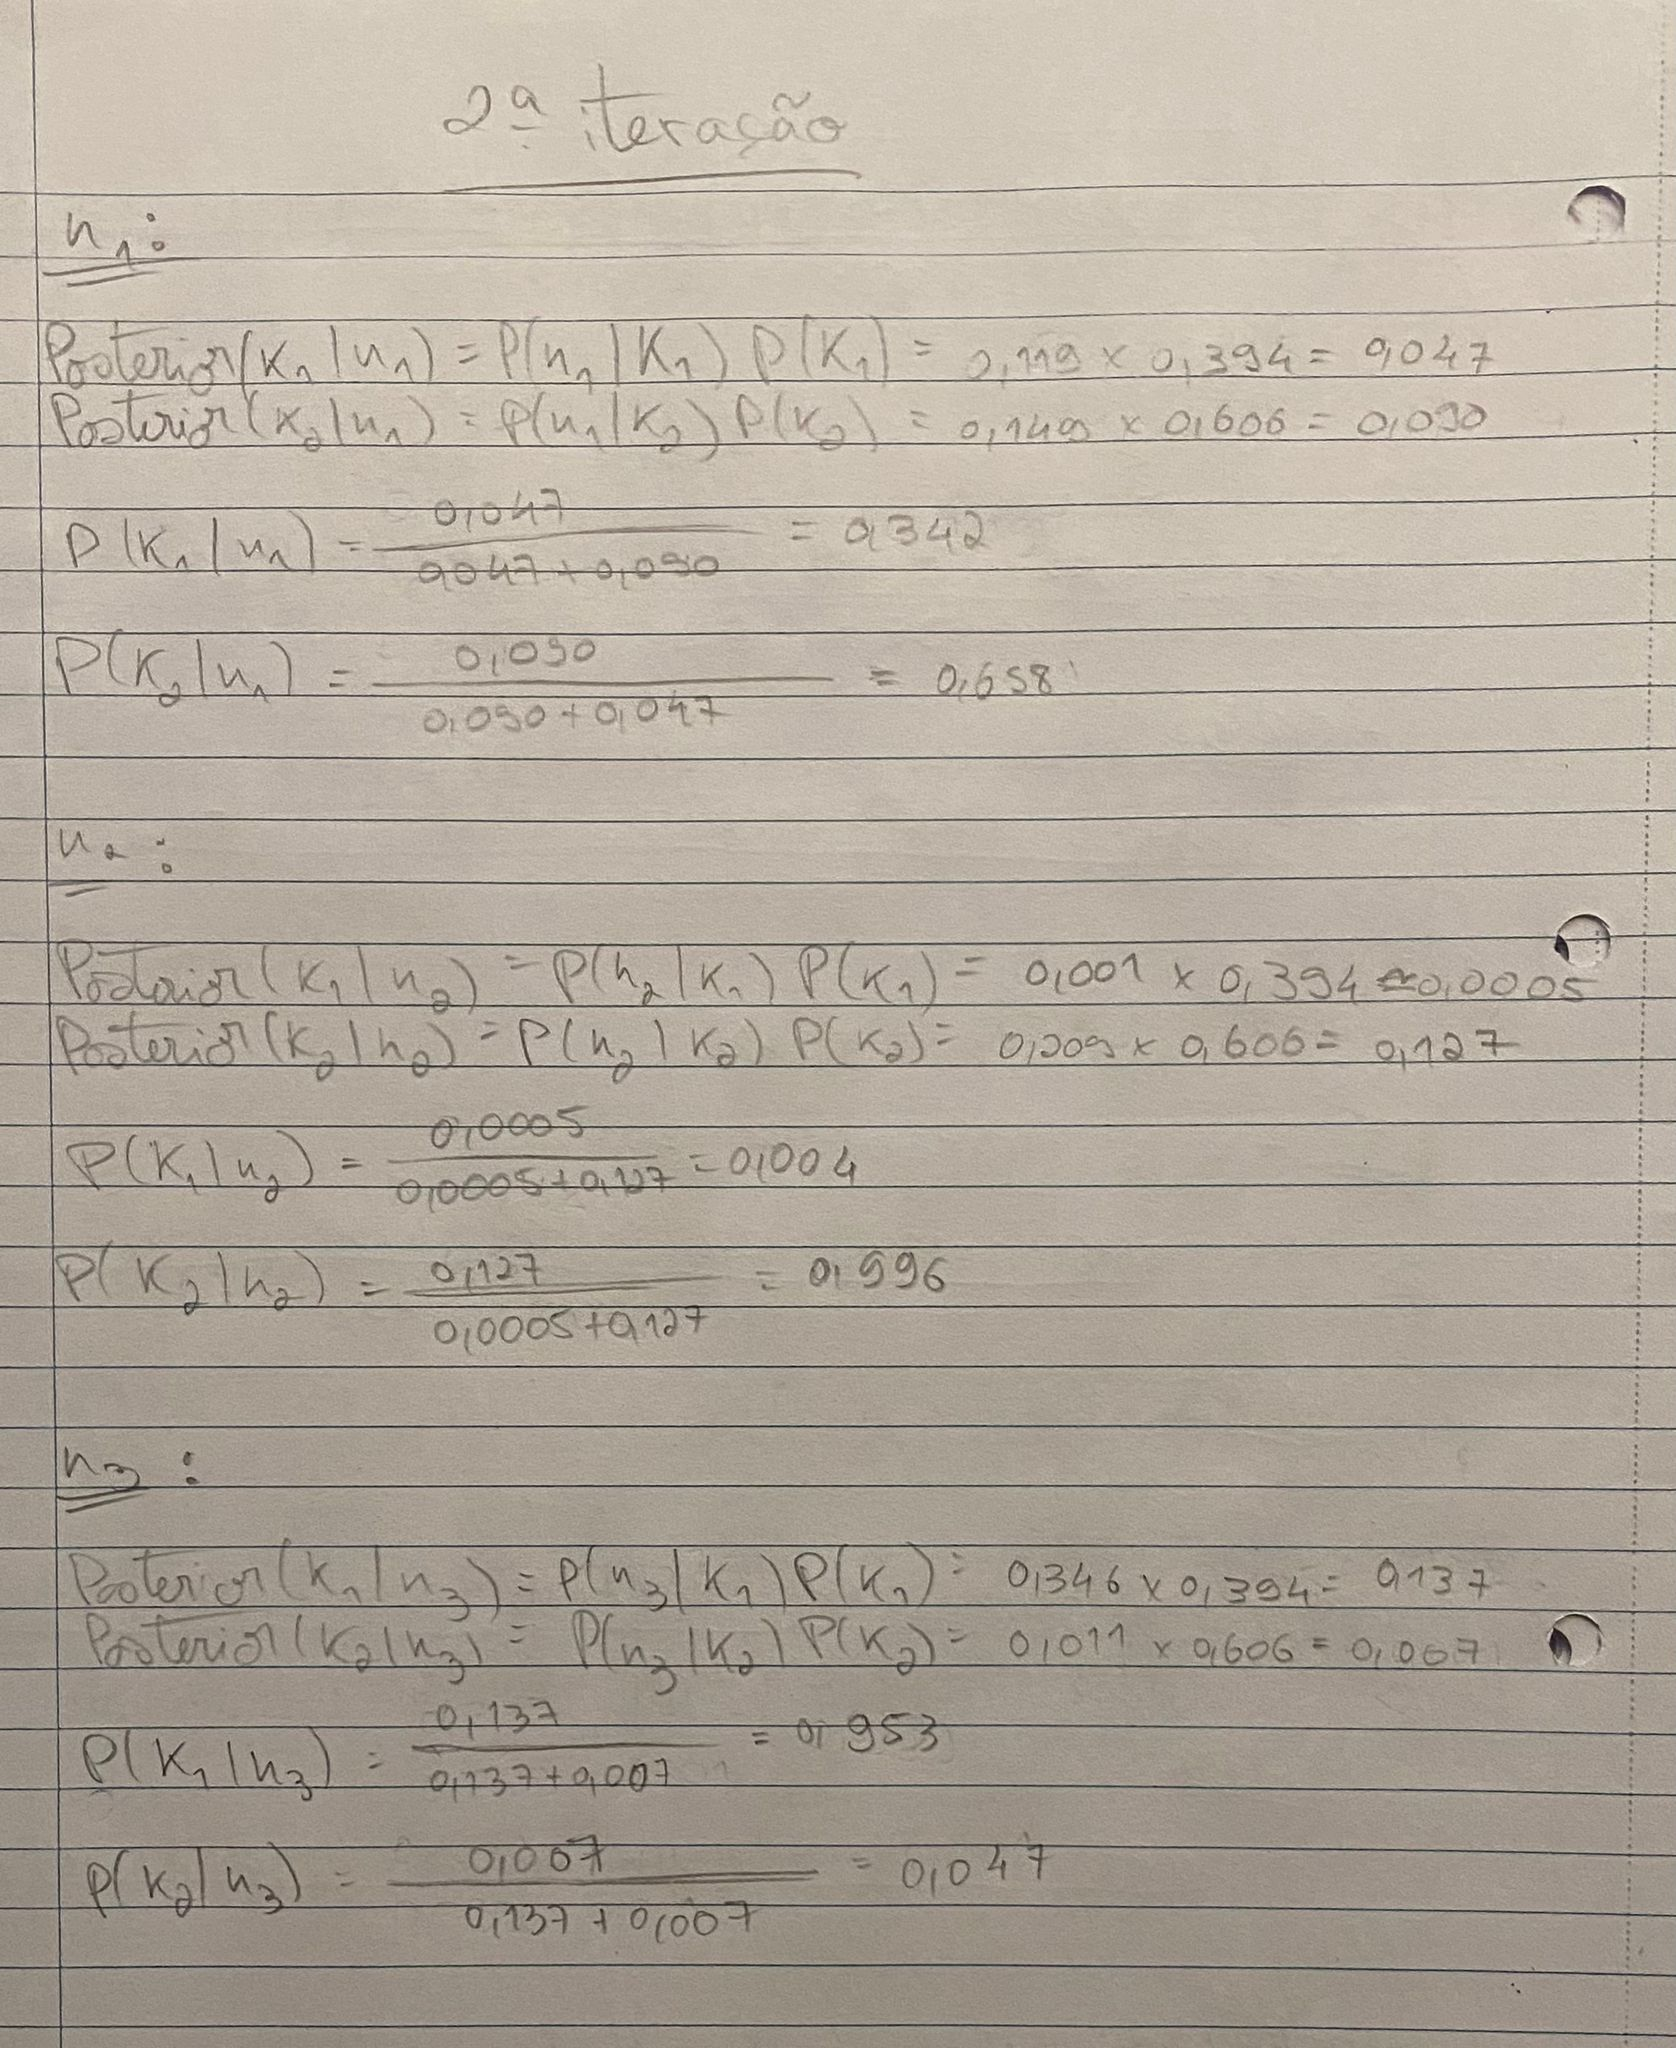 2ª iteração
n₁:
Posterior(K₁|n₁) = P(n₁|K₁) P(K₁) = 0,119 × 0,394 = 0,047
Posterior(K₂|n₁) = P(n₁|K₂) P(K₂) = 0,149 × 0,606 = 0,090
P(K₁|n₁) = 0,047 / 0,047 + 0,090 = 0,342
P(K₂|n₁) = 0,090 / 0,090 + 0,047 = 0,658
n₂:
Posterior(K₁|n₂) = P(n₂|K₁) P(K₁) = 0,001 × 0,394 ≈ 0,0005
Posterior(K₂|n₂) = P(n₂|K₂) P(K₂) = 0,209 × 0,606 = 0,127
P(K₁|n₂) = 0,0005 / 0,0005 + 0,127 = 0,004
P(K₂|n₂) = 0,127 / 0,0005 + 0,127 = 0,996
n₃:
Posterior(K₁|n₃) = P(n₃|K₁) P(K₁) = 0,346 × 0,394 = 0,137
Posterior(K₂|n₃) = P(n₃|K₂) P(K₂) = 0,011 × 0,606 = 0,007
P(K₁|n₃) = 0,137 / 0,137 + 0,007 = 0,953
P(K₂|n₃) = 0,007 / 0,137 + 0,007 = 0,047